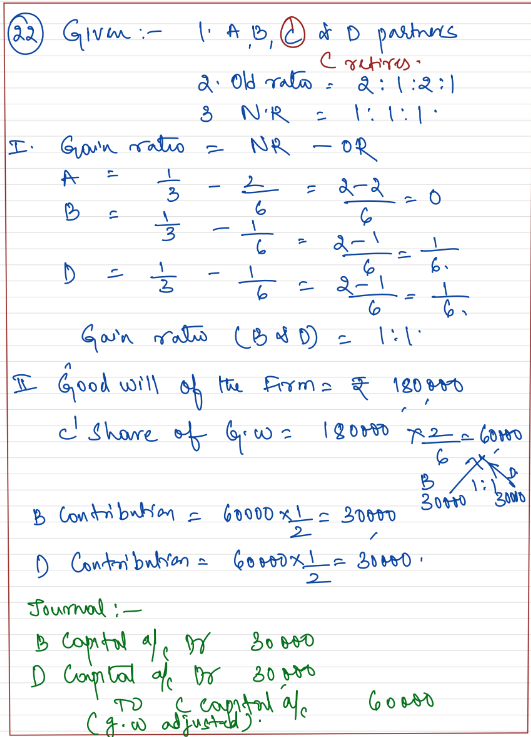 22 Given :- 1. A, B, C & D partners
C retires.
2. Old ratio = 2:1:2:1
3 N.R = 1:1:1.
I. Gain ratio = NR - OR
A = 1/3 - 2/6 = 2-2/6 = 0
B = 1/3 - 1/6 = 2-1/6 = 1/6.
D = 1/3 - 1/6 = 2-1/6 = 1/6.
Gain ratio (B & D) = 1:1.
II Good will of the Firm = ₹ 180000
C' Share of G.W = 180000 × 2/6 = 60000
B 1:1 D
30000 30000
B Contribution = 60000 × 1/2 = 30000
D Contribution = 60000 × 1/2 = 30000.
Journal :-
B Capital a/c Dr 30000
D Capital a/c Dr 30000
TO C capital a/c 60000
(g.w adjusted).